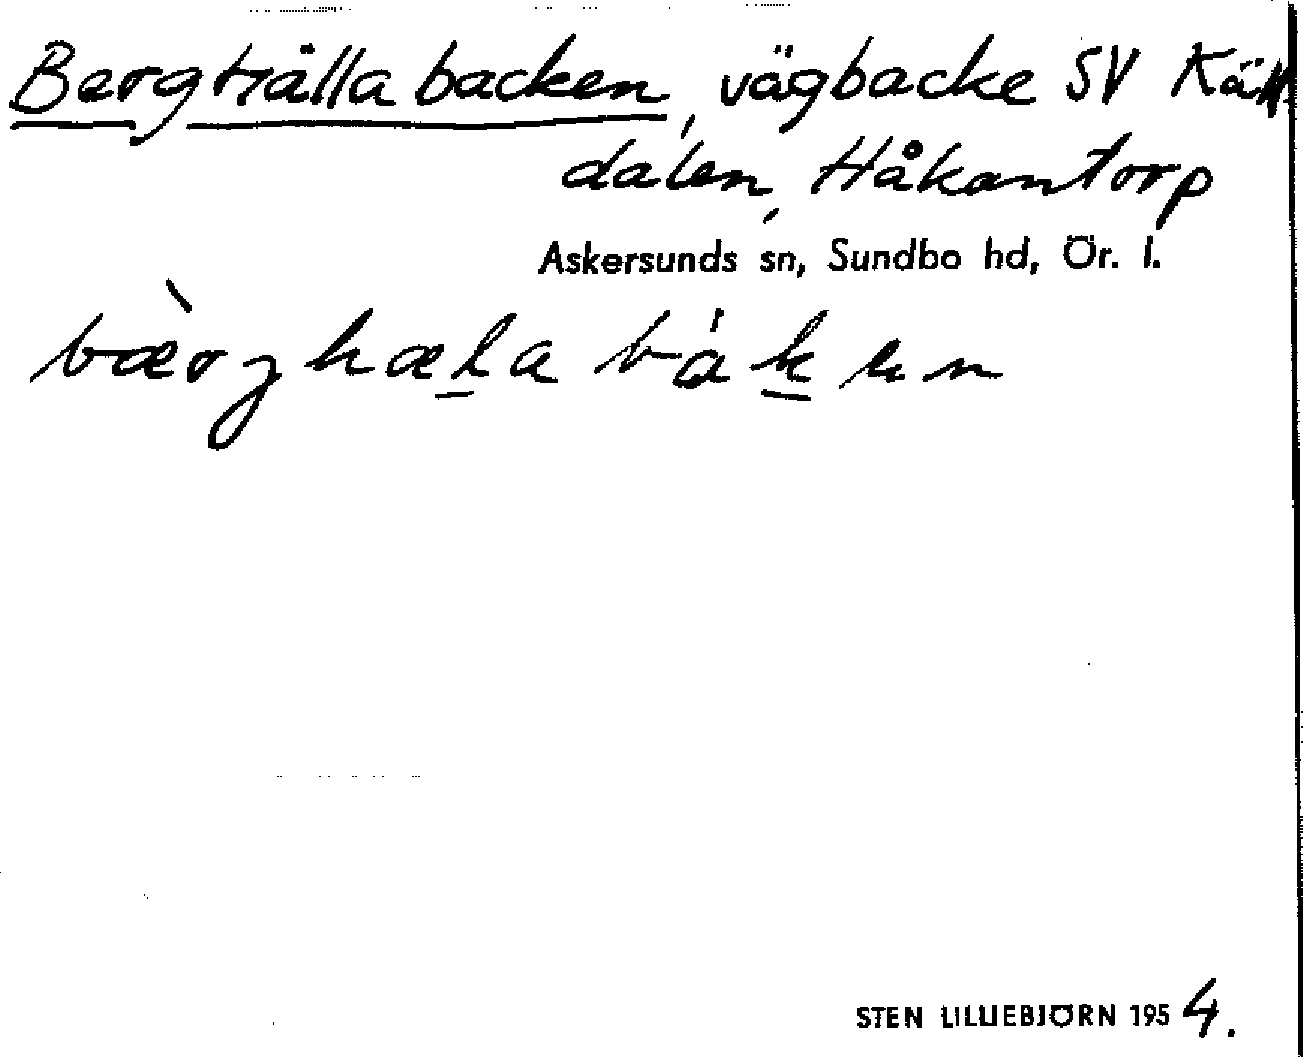 Berghällabacken, vägbacke SV Käll-
dalen, Håkantorp
Askersunds sn, Sundbo hd, Ör. l.
bærghæla bakən
STEN LILLIEBJÖRN 1954.